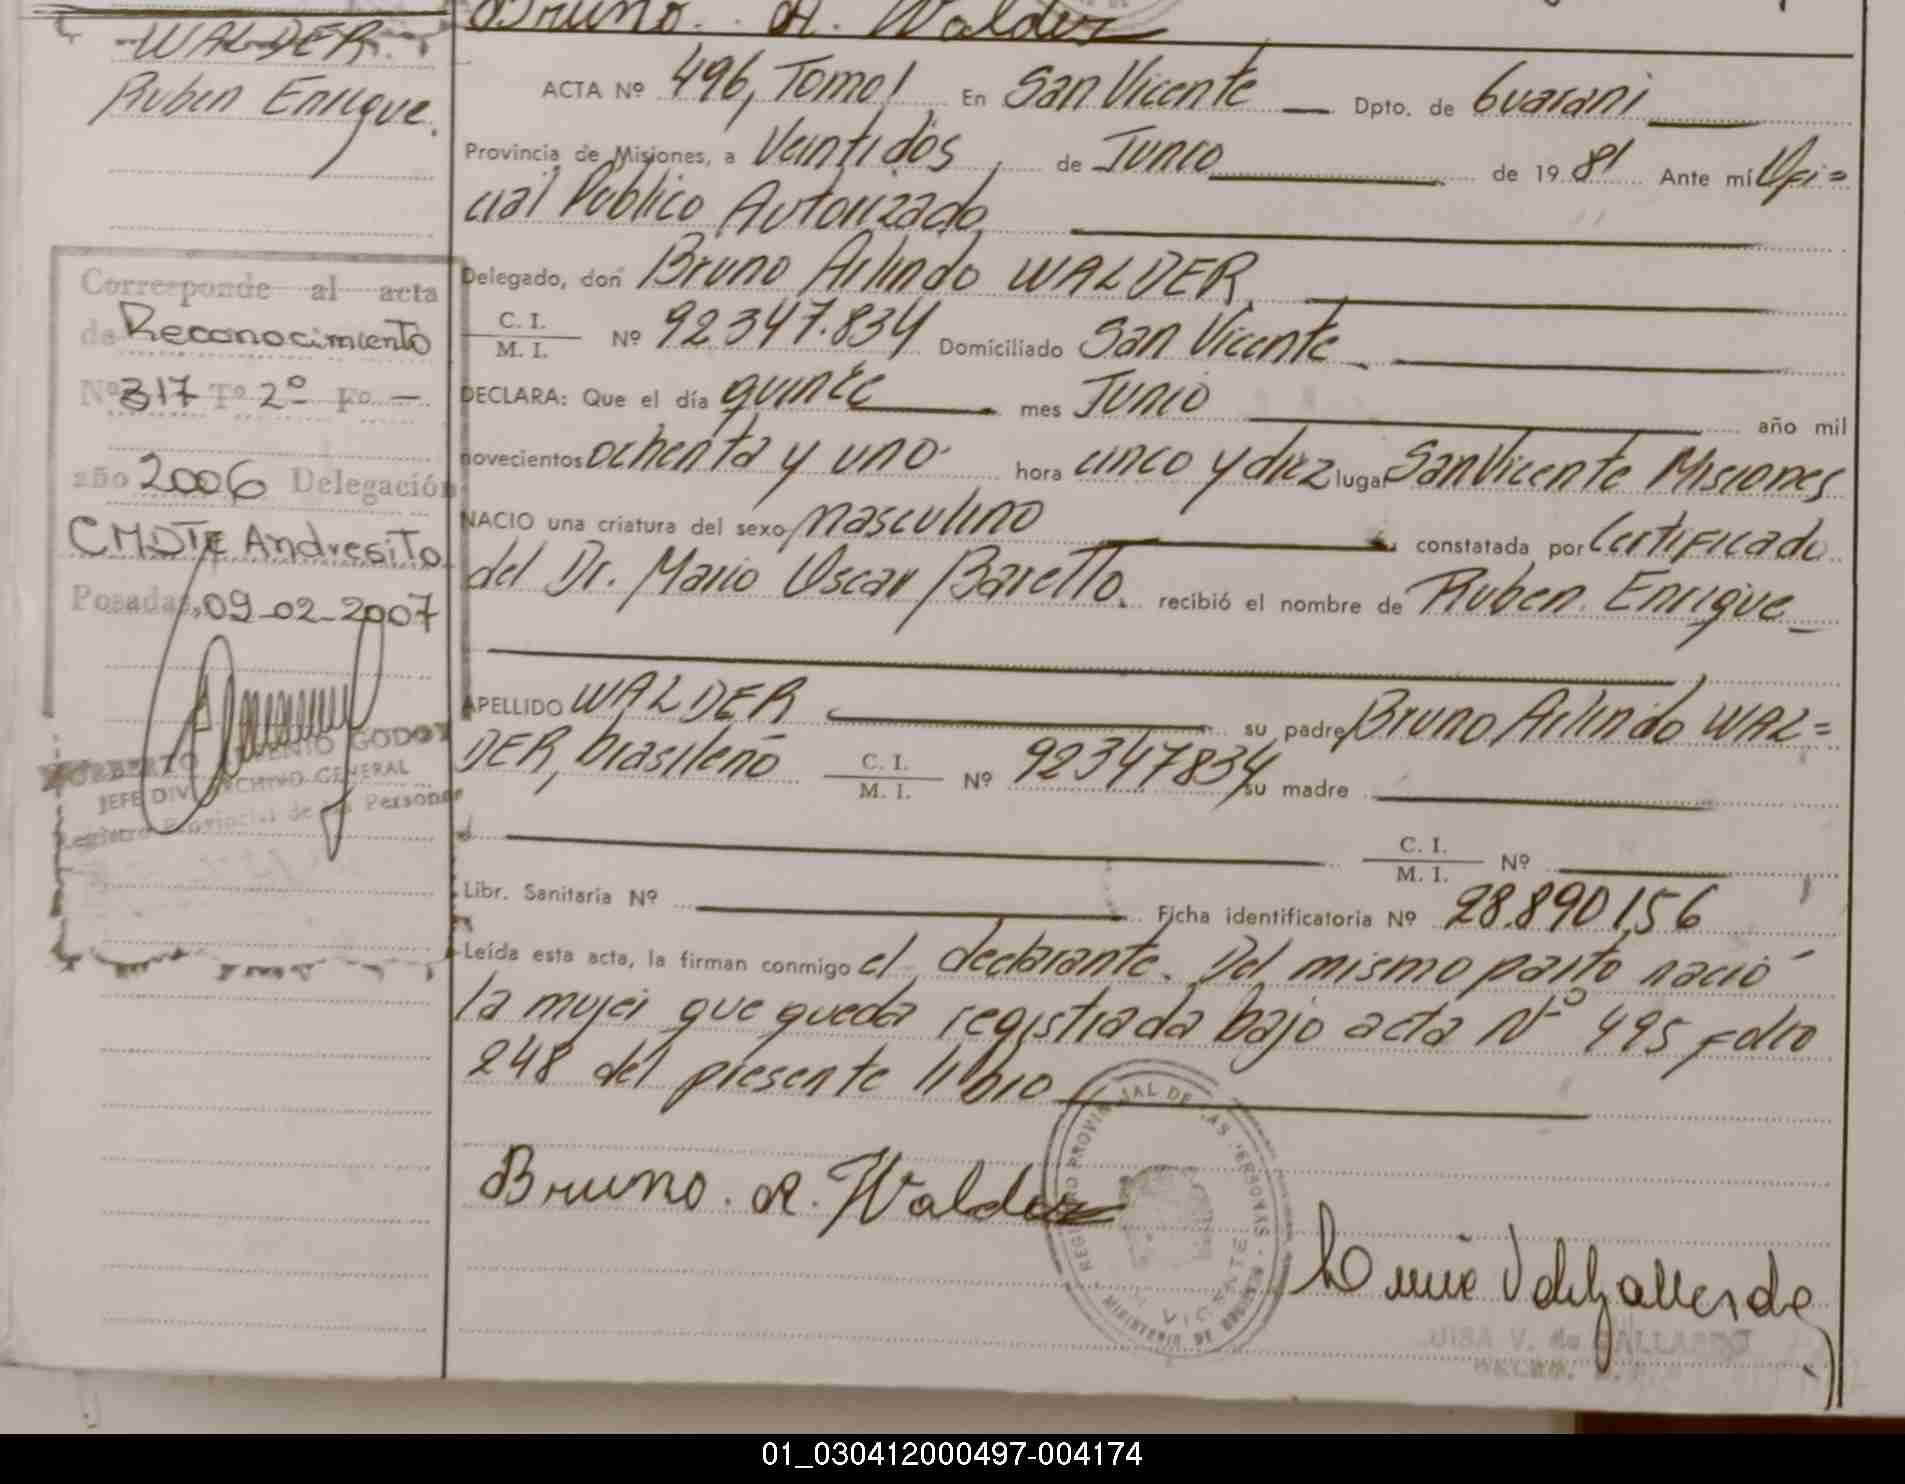 Bruno. A. Walder
WALDER
Ruben Enrique.
ACTA Nº 496, Tomo I En San Vicente Dpto. de Guarani
Provincia de Misiones, a Veintidós de Junio de 1981 Ante mí Ofi=
cial Público Autorizado
Delegado, don Bruno Arlindo WALDER
C. I.
M. I. Nº 92.347.834 Domiciliado San Vicente
DECLARA: Que el día quince mes Junio año mil
novecientos ochenta y uno hora cinco y diez lugar San Vicente Misiones
NACIO una criatura del sexo masculino constatada por Certificado
del Dr. Mario Oscar Baretto. recibió el nombre de Ruben Enrique
APELLIDO WALDER su padre Bruno Arlindo WAL=
DER, brasileño C. I.
M. I. Nº 92347834 su madre
C. I.
M. I. Nº
Libr. Sanitaria Nº Ficha identificatoria Nº 28.890.156
Leída esta acta, la firman conmigo el declarante. Del mismo parto nació
la mujer que queda registrada bajo acta Nº 495 folio
248 del presente libro
Bruno. A. Walder
REGISTRO PROVINCIAL DE LAS PERSONAS
MINISTERIO DE
VICENTE
LUISA V. de GALLARDO
Corresponde al acta
de Reconocimiento
Nº 317 Tº 2º Fº —
año 2006 Delegación
CMDTE Andresito
Posadas, 09-02-2007
NORBERTO GODOY
JEFE DIV. ARCHIVO GENERAL
Registro Provincial de las Personas
01_030412000497-004174